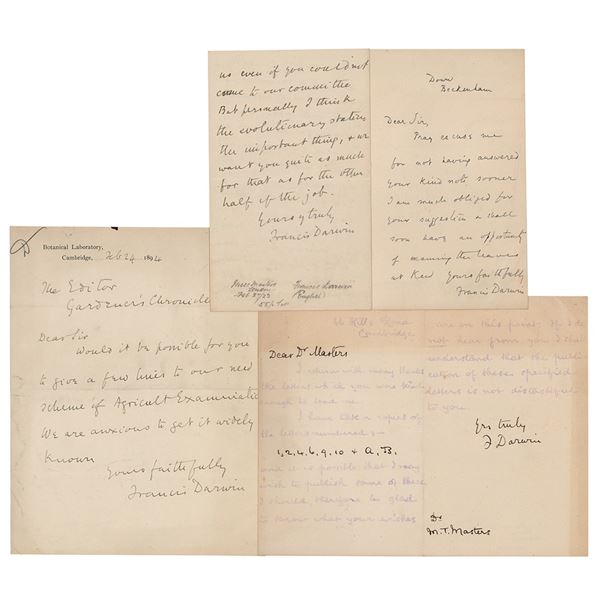 us even if you could not
come to our committee
But personally I think
the evolutionary station
the important thing, & we
want you quite as much
for that as for the other
half of the job.
Yours truly
Francis Darwin
Francis Darwin
(English)
Down
Beckenham
Dear Sir,
Pray excuse me
for not having answered
your kind note sooner
I am much obliged for
your suggestion & shall
soon have an opportunity
of examining the leaves
at Kew Yours faithfully
Francis Darwin
Botanical Laboratory,
Cambridge, Feb 24 1894
The Editor
Gardener's Chronicle
Dear Sir
Would it be possible for you
to give a few lines to our new
scheme of Agricult Examinatio
We are anxious to get it widely
known
Yours faithfully
Francis Darwin
Cambridge
Dear Dr Masters
I return with many thanks
the letters which you were kind
enough to lend me.
I have take a copies of
the letters numbered
1, 2, 4, 6, 9, 10 & A, B.
and it is possible that I may
wish to publish some of these
I should therefore be glad
to know what your wishes
are on this point. If I do
not hear from you I shall
understand that the publi
cation of these specified
letters is not distasteful
to you.
Yrs truly
F Darwin
Dr
M. T. Masters